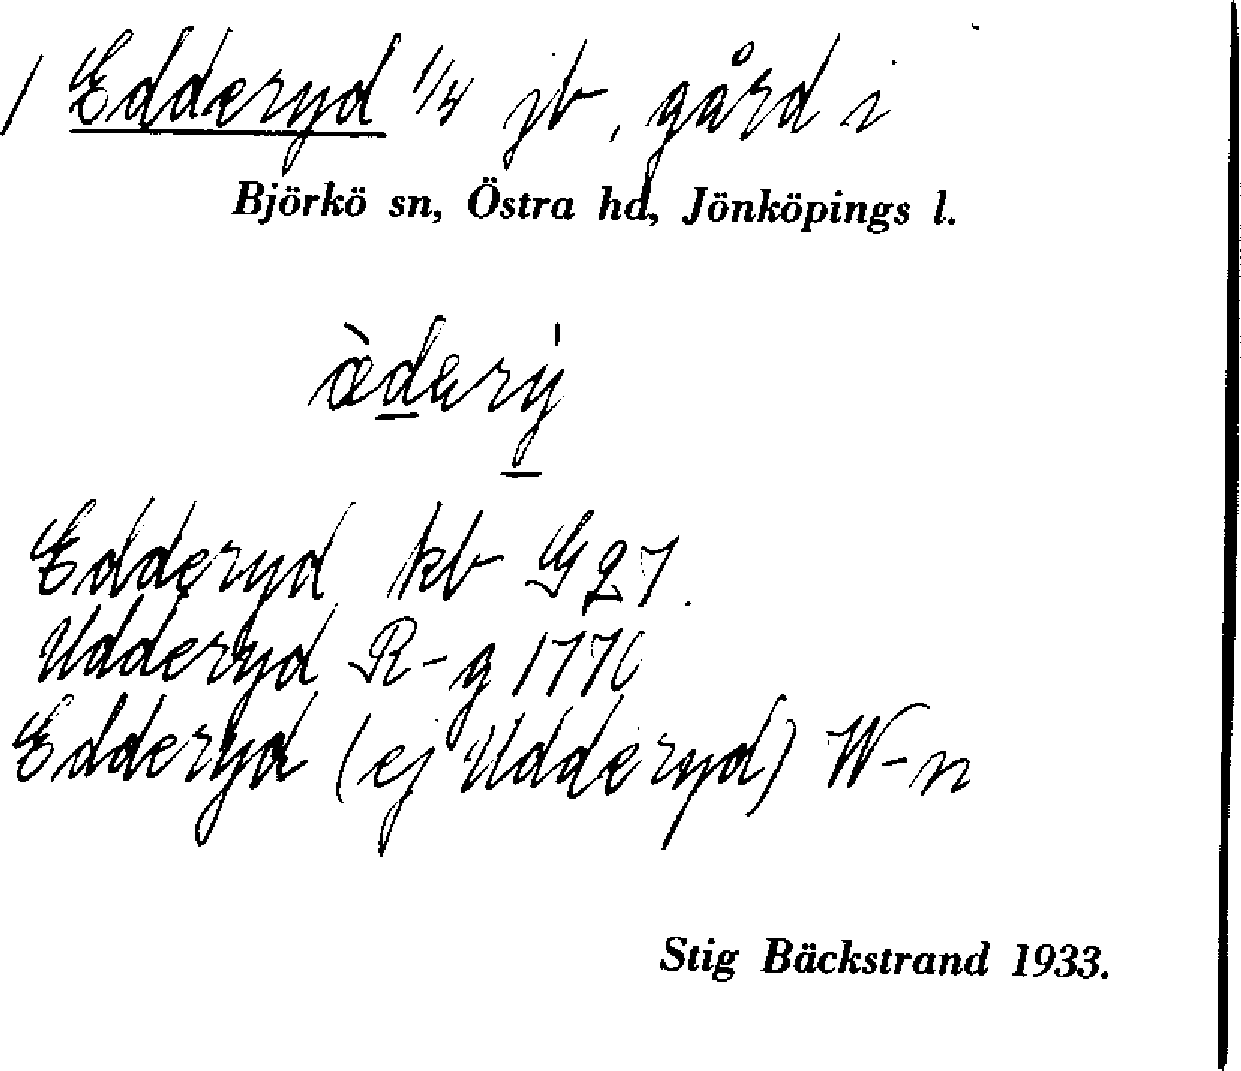 / Edderyd 1/4 jb, gård i
Björkö sn, Östra hd, Jönköpings l.
Edderyd kb G 27.
Udderyd R-g 1770
Edderyd (ej Udderyd) W-n
Stig Bäckstrand 1933.